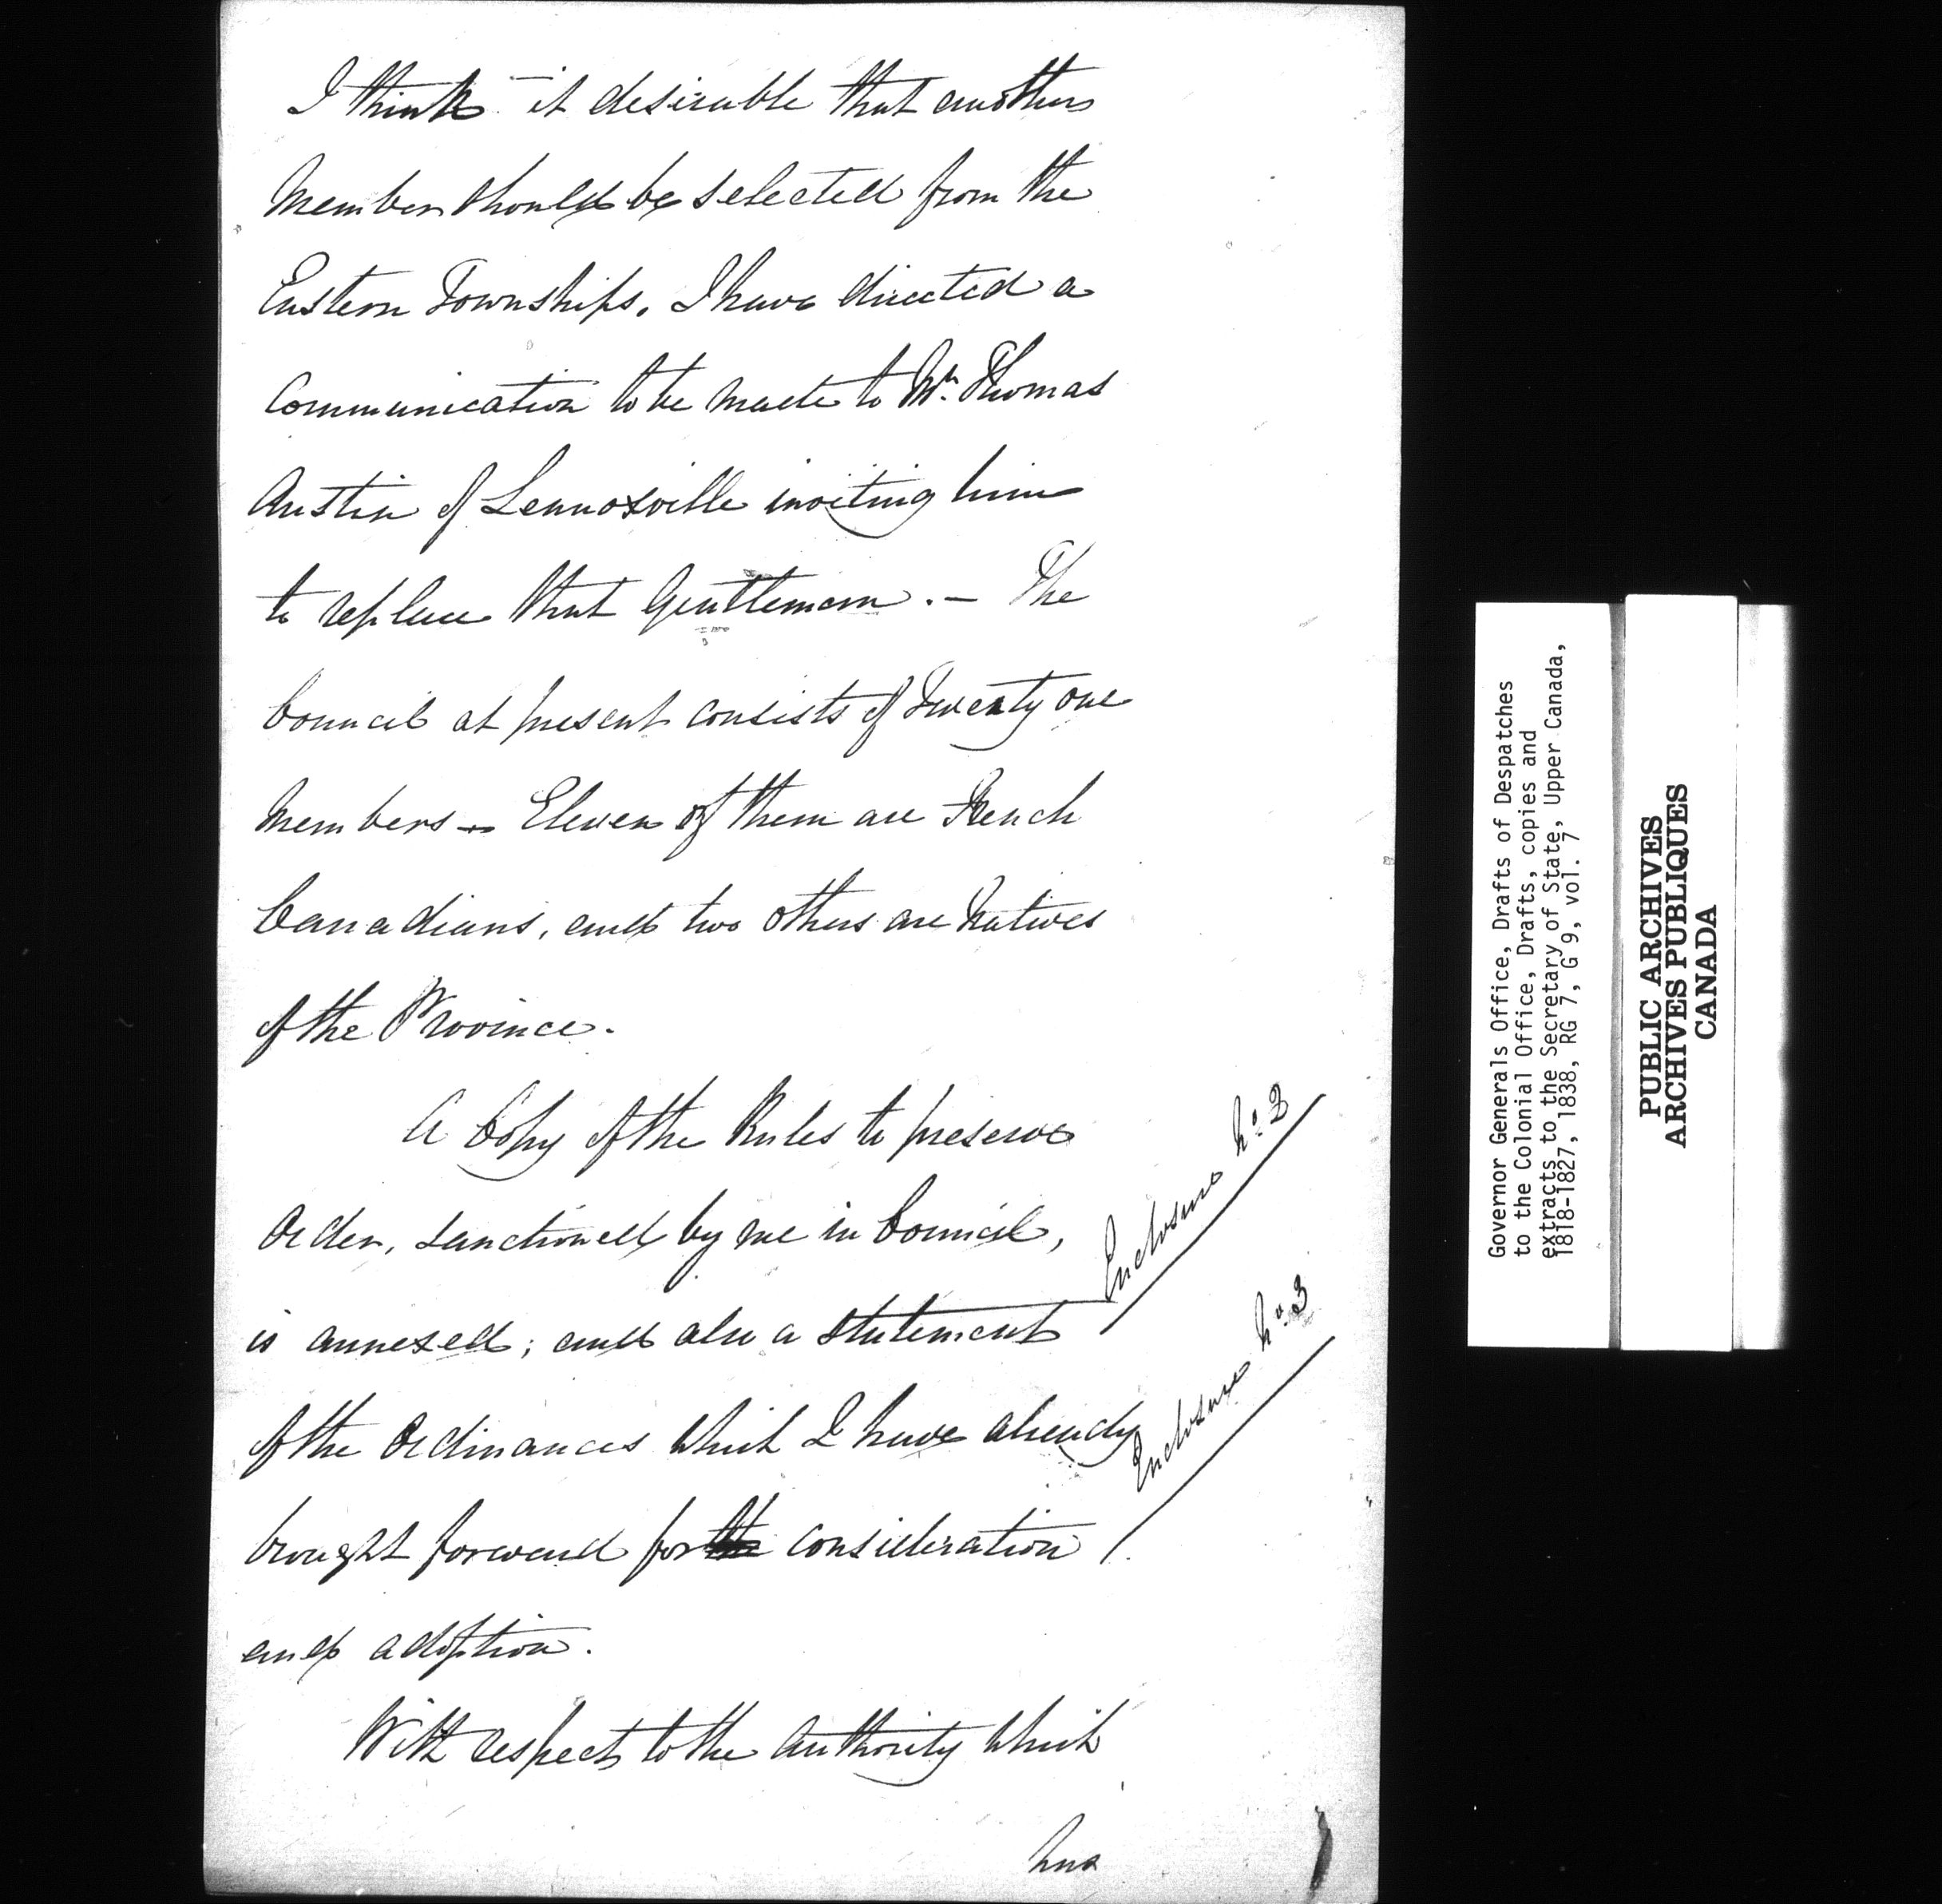 I think it desirable that another
Member should be selected from the
Eastern Townships. I have directed a
Communication to be made to Mr. Thomas
Austin of Lennoxville inviting him
to replace that Gentleman. – The
Council at present consists of Twenty one
Members – Eleven of them are French
Canadians, and two others are Natives
of the Province.
A Copy of the Rules to preserve
Order, sanctioned by me in Council,
Enclosure No. 2
is annexed; and also a statement
of the Ordinances which I have already
Enclosure No. 3
brought forward for the consideration
and adoption.
With respect to the Authority which
has
Governor Generals Office, Drafts of Despatches
to the Colonial Office, Drafts, copies and
extracts to the Secretary of State, Upper Canada,
1818-1827, 1838, RG 7, G 9, vol. 7
PUBLIC ARCHIVES
ARCHIVES PUBLIQUES
CANADA